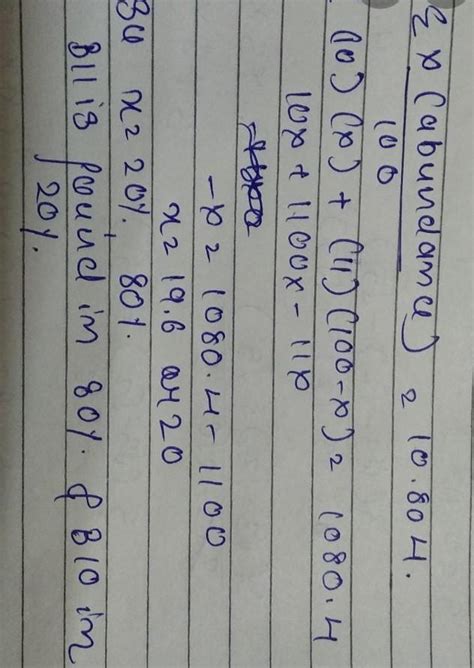 Σx (abundance) = 10.804.
100
(10) (x) + (11) (100-x) = 1080.4
10x + 1100x - 11x
-x = 1080.4 - 1100
x = 19.6 or 20
x = 20%. 80%.
B11 is found in 80%. & B10 in
20%.